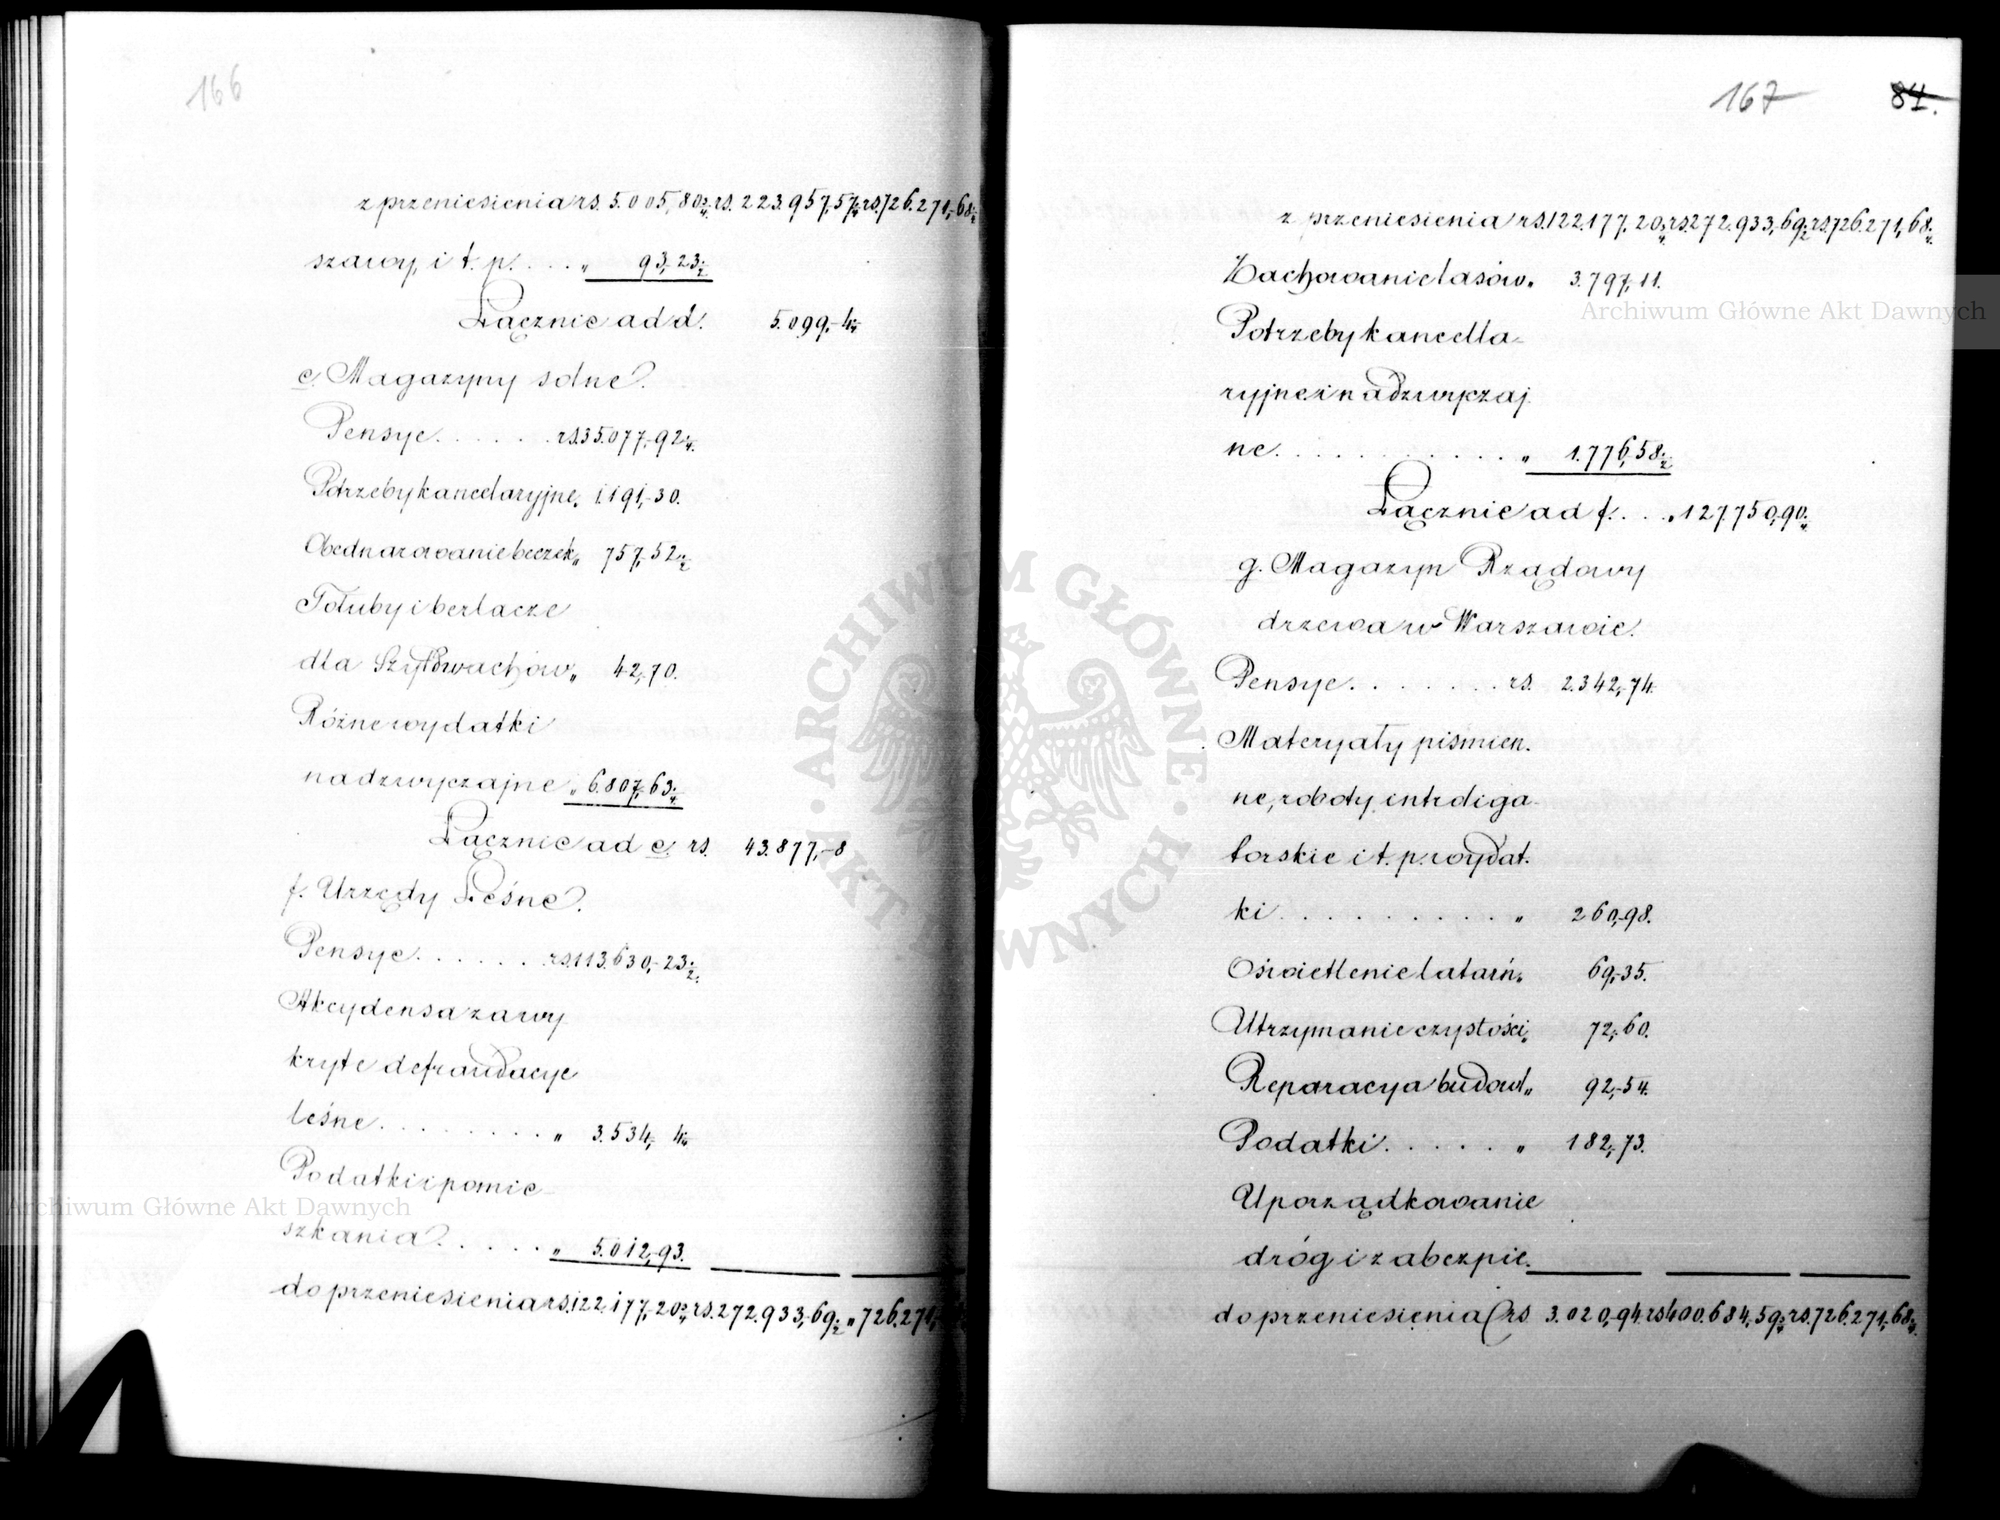 166
z przeniesienia rs. 5.005,80 rs. 223.957,57 rs. 726.271,68
szawy, i t. p. . . . „ 93,23½
Łącznie ad d. 5.099,-4
e. Magazyny solne.
Pensye . . . . . . rs. 35.077,-92
Potrzeby kancelaryjne „ 1.191,-30.
Obednarowanie beczek „ 757,-52½
Tołuby i berlacze
dla Szyldwachów „ 42,-70.
Różne wydatki
nadzwyczajne „ 6.807,-63
Łącznie ad e. rs. 43.877,-8
f. Urzędy Leśne.
Pensye . . . . . . rs. 113.630,-23½
Akcydensa za wy
kryte defraudacye
leśne . . . . . . . . „ 3.534,- 4
Podatki i pomie-
szkania . . . . . „ 5.012,-93.
do przeniesienia rs. 122.177,-20 rs. 272.933,-69½ „ 726.271,-
167 84.
z przeniesienia rs. 122.177,-20 rs. 272.933,-69½ rs. 726.271,-68
Zachowanie lasów „ 3.797,-11.
Potrzeby kancella-
ryjne i nadzwyczaj
ne . . . . . . . . . . „ 1.776,-58½
Łącznie ad f. . . . „ 127.750,-90
g. Magazyn Rządowy
drzewa w Warszawie.
Pensye . . . . . . . rs. 2.342,-74.
Materyały piśmien.
ne, roboty intrdiga-
torskie i t. p. wydat.
ki . . . . . . . . . . „ 260,-98.
Oświetlenie latarń „ 69,-35.
Utrzymanie czystości „ 72,-60.
Reparacya budowl „ 92,-54.
Podatki . . . . . . „ 182,-73.
Uporządkowanie
dróg i zabezpie.
do przeniesienia rs 3.020,-94. rs 400.684,-59 rs. 726.271,-68
Archiwum Główne Akt Dawnych
Archiwum Główne Akt Dawnych
ARCHIWUM GŁÓWNE AKT DAWNYCH